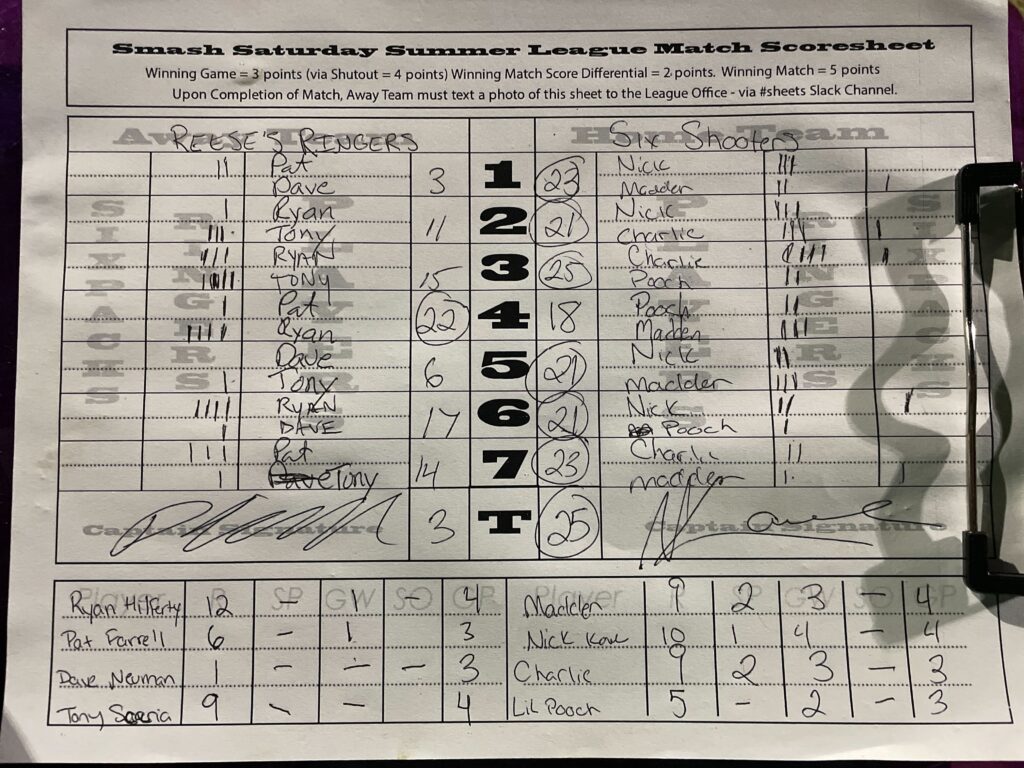 Smash Saturday Summer League Match Scoresheet
Winning Game = 3 points (via Shutout = 4 points) Winning Match Score Differential = 2 points. Winning Match = 5 points
Upon Completion of Match, Away Team must text a photo of this sheet to the League Office - via #sheets Slack Channel.
REESE'S RINGERS Six Shooters
Pat Nick
Dave 3 1 23 Madder
Ryan Nick
Tony 11 2 21 Charlie
RYAN Charlie
TONY 15 3 25 Pooch
Pat Pooch
Ryan 22 4 18 Madder
Dave Nick
Tony 6 5 21 madder
RYAN Nick
DAVE 17 6 21 Pooch
Pat Charlie
Tony 14 7 23 madder
Captain Signature 3 T 25 Captain Signature
Player P SP GW SO GP Player P SP GW SO GP
12 - 1 - 4 Madder 9 2 3 - 4
Pat Farrell 6 - 1 3 Nick 10 1 4 - 4
Dave Neuman 1 - - - 3 Charlie 9 2 3 - 3
Tony 9 - - 4 Lil Pooch 5 - 2 - 3